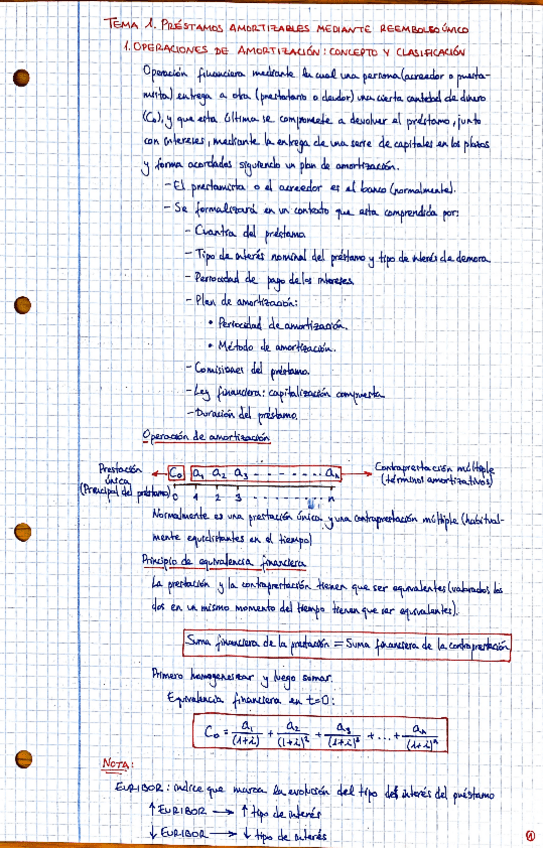 TEMA 1. PRÉSTAMOS AMORTIZABLES MEDIANTE REEMBOLSO ÚNICO
1. OPERACIONES DE AMORTIZACIÓN: CONCEPTO Y CLASIFICACIÓN
Operación financiera mediante la cual una persona (acreedor o presta-
mista) entrega a otra (prestatario o deudor) una cierta cantidad de dinero
(C₀), y que esta última se compromete a devolver el préstamo, junto
con intereses, mediante la entrega de una serie de capitales en los plazos
y forma acordados siguiendo un plan de amortización.
- El prestamista o el acreedor es el banco (normalmente).
- Se formalizará en un contrato que esta comprendida por:
- Cuantía del préstamo
- Tipo de interés nominal del préstamo y tipo de interés de demora
- Periocidad de pago de los intereses
- Plan de amortización:
• Periocidad de amortización.
• Método de amortización.
- Comisiones del préstamo.
- Ley financiera: capitalización compuesta
- Duración del préstamo.
Operación de amortización
Prestación única (Principal del préstamo) ← C₀ a₁ a₂ a₃ - - - - - - - aₙ → Contraprestación múltiple (términos amortizativos)
0 1 2 3 - - - - - - - n
Normalmente es una prestación única y una contraprestación múltiple (habitual-
mente equidistantes en el tiempo)
Principio de equivalencia financiera
La prestación y la contraprestación tienen que ser equivalentes (valorados los
dos en un mismo momento del tiempo tienen que ser equivalentes).
Suma financiera de la prestación = Suma financiera de la contraprestación
Primero homogeneizar y luego sumar.
Equivalencia financiera en t=0:
C₀ = a₁/(1+i) + a₂/(1+i)² + a₃/(1+i)³ + ... + aₙ/(1+i)ⁿ
NOTA:
EURIBOR: índice que marca la evolución del tipo del interés del préstamo
↑ EURIBOR → ↑ tipo de interés
↓ EURIBOR → ↓ tipo de interés
1